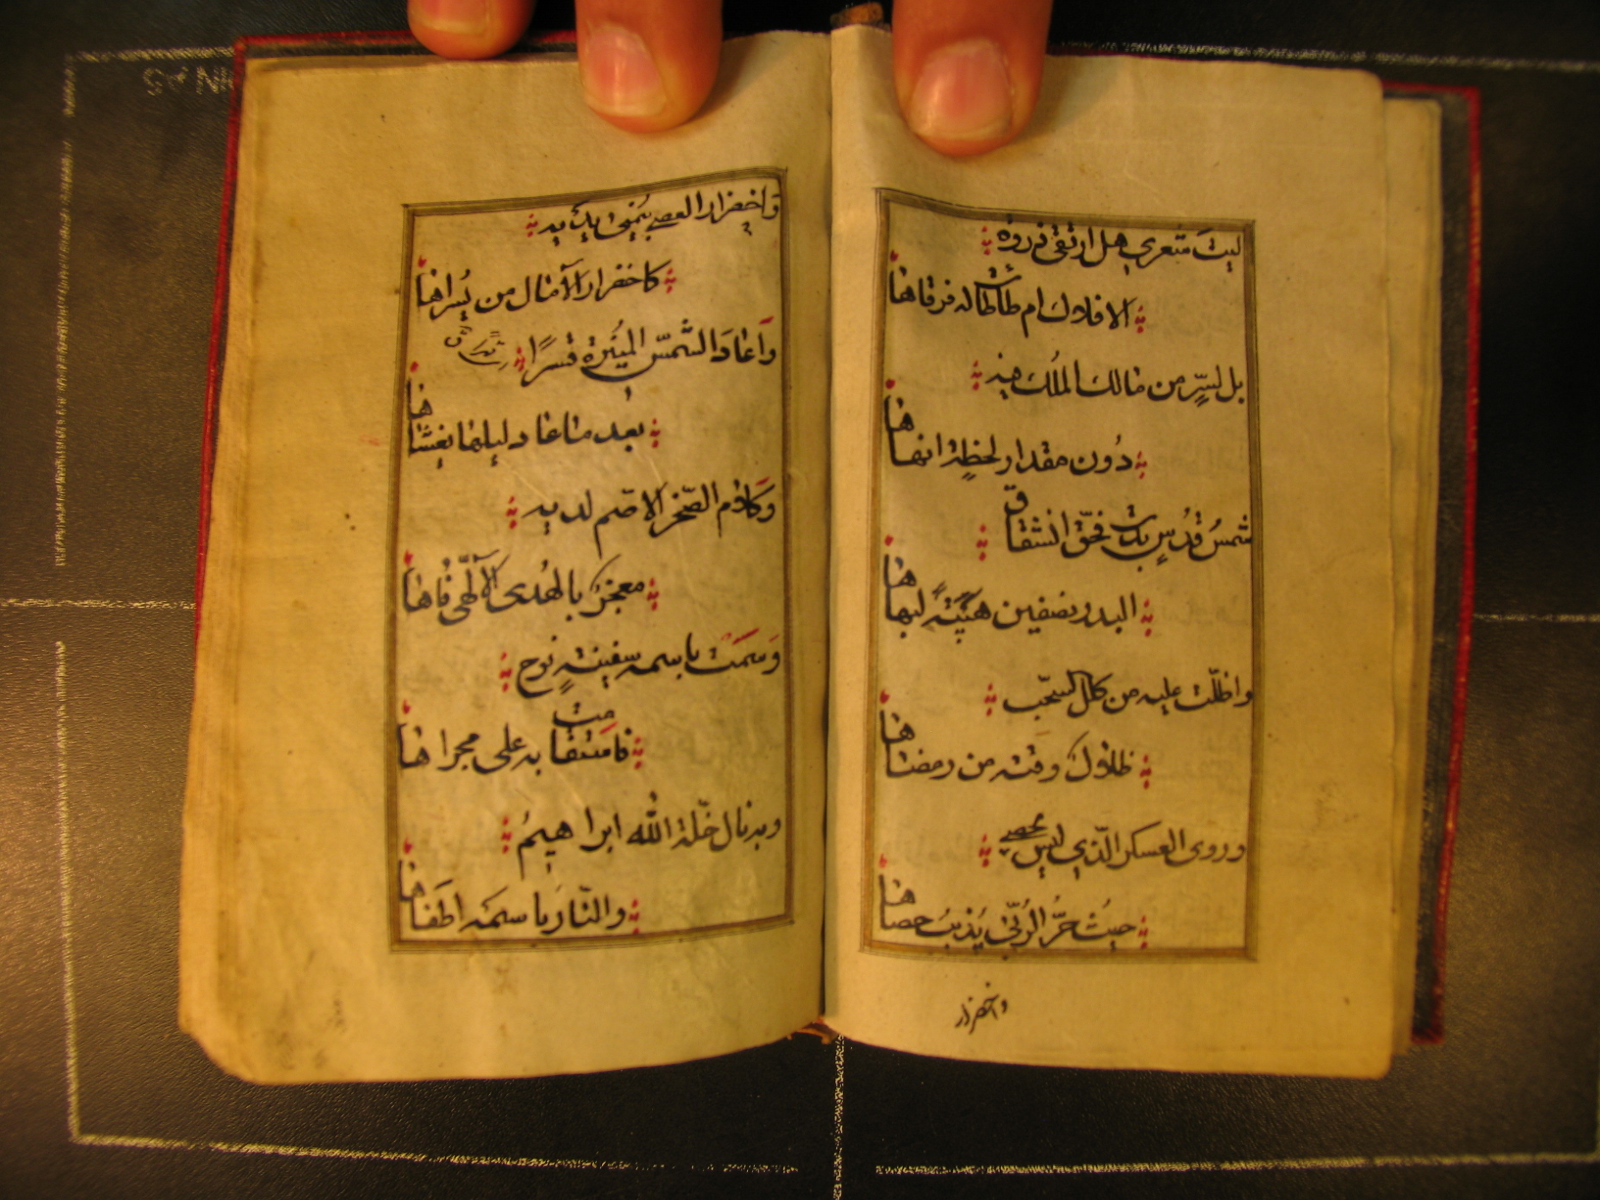 ليتَ شعري هل ارتقى ذروة
الافلاك ام طاطات له فرقاها
بل لسرٍّ من مالك الملك فيه
دون مقدار لحظةٍ انهاها
شمسُ قدُسٍ بدت فحقّ انشقاق
البدر نصفين هيبةً لبهاها
واظلّت عليه من كلل السحب
ظلال وقته من رمضاها
وروى العسكر الّذي ليس يحصى
حيث حرُّ الرُبّى يُذيبُ حصاها
واخضرار
وَاخضرار العصى بيُمنى يديه
كاخضرار الآمال من يُسراها
وَاعادَ الشمسَ المنيرة قسرًا
بعد ما عاد ليلها يغشاها
وكلام الصّخر الاصّم لديه
معجزٌ بالهُدى الآلٓهّى فاها
وَسَمَتْ باسمه سفينةِ نوح
فاستقامت به على مجراها
وبه نال خلّة اللّه ابراهيمُ
والنّار باسمه اطفاها